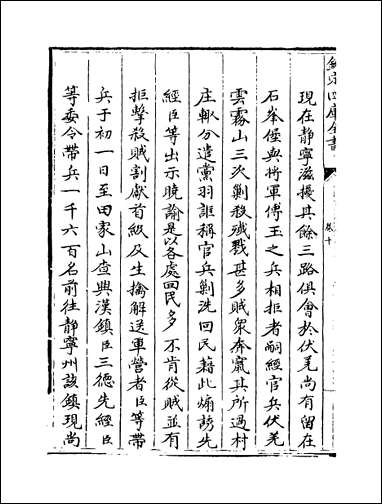 欽定四庫全書
卷十
現在靜寧滋擾其餘三路俱會於伏羌尚有留在
石峯堡與將軍傅玉之兵相拒者嗣經官兵伏羌
雲霧山三次剿殺殲戮甚多賊衆奔竄其所過村
庄輒分遣黨羽誑稱官兵剿洗回民藉此煽誘先
經臣等出示曉諭是以各處回民多不肯從賊並有
拒擊殺賊割獻首級及生擒解送軍營者臣等帶
兵于初一日至田家山查興漢鎮臣三德先經臣
等委令帶兵一千六百名前往靜寧州該鎮現尚